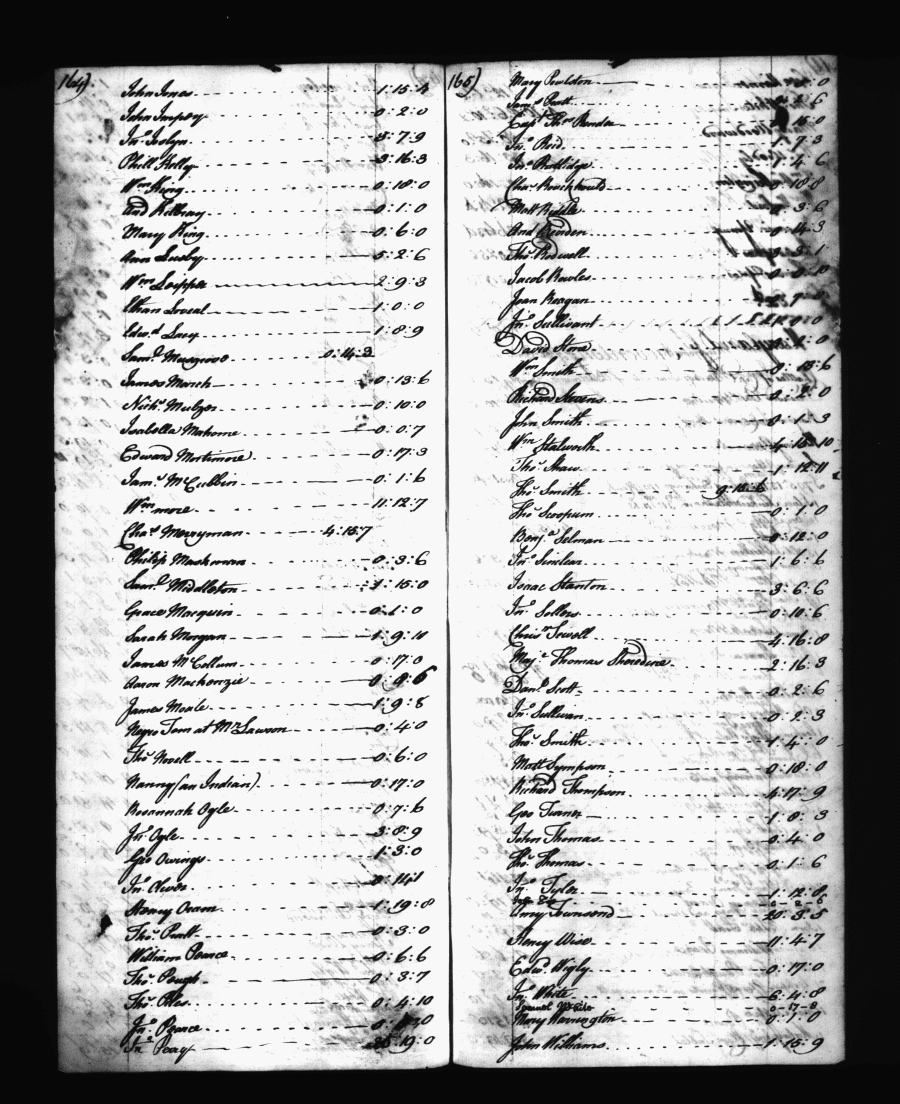 164)
John Jones 1:15:4
John Impey 0:2:0
Jnº Joslyn 3:7:9
Phill Kelly 3:16:3
Wm King 0:18:0
And 0:1:0
Mary King 0:6:0
Ann Lusby 5:2:6
Wm 2:9:3
Ethan Loveal 1:0:0
Edwd Lacy 1:8:9
Saml Musgrove 0:14:3
James March 0:13:6
Nichs 0:10:0
Isabella Mahome 0:0:7
Edward Mortimore 0:17:3
Saml McCubbin 0:1:6
Wm more 11:12:7
Chas Merryman 4:15:7
Philip Mackmon 0:3:6
Saml Middleton 1:15:0
Grace Macquin 0:1:0
Sarah Morgan 1:9:11
James McCollum 0:17:0
Aaron Mackenzie 0:9:6
James Moale 1:9:8
Negro Tom at Mr Lawson 0:4:0
Thos Norell 0:6:0
Nanny (an Indian) 0:17:0
Rosannah Ogle 0:7:6
Jnº Ogle 3:8:9
Geo Owings 1:3:0
Jnº Oliver
Henry Oram 1:19:8
Thos Pratt 0:3:0
William Pearce 0:6:6
Thos Pough 0:3:7
Thos Piles 0:4:10
Jnº Pearce
Jnº Peary 19:0
165)
Mary 0
Saml Pratt 6
Capt Thos Render 0
Jnº Reid 7:3
Jnº Rutlidge 4:6
Chas 18:8
Matt Riddle 3:6
And Reinden 14:3
Thos Rodwell 1
Jacob Rowles 10
Joan Reagan
Jnº Sullivant
David Stone 0
Wm Smith 0:13:6
Richard Stevens 0:2:0
John Smith 0:1:3
Wm Stalworth 4:15:10
Thos Shaw 1:12:11
Thos Smith 9:18:6
Thos Scoopum 0:1:0
Benja Selman 0:12:0
Jnº Sinclear 1:6:6
Isaac Stanton 3:6:6
Jnº Sellers 0:10:6
Chrisr Sewell 4:16:8
Maj. Thomas Sheredine 2:16:3
Danl Scott 0:2:6
Jnº Sullivan 0:2:3
Thos Smith 1:4:0
Matt Sympson 0:18:0
Richard Thompson 4:17:9
Geo Turner 1:8:3
John Thomas 0:4:0
Thos Thomas 0:1:6
Jnº Tyler 1:12:8
0-2-6
Amy Townsend 20:3:5
Henry Wise 11:4:7
Edwd Wigly 0:17:0
Jnº White 6:4:8
Samuel White 0-17-0
Mary Warrington 0:1:0
John Williams 1:15:9